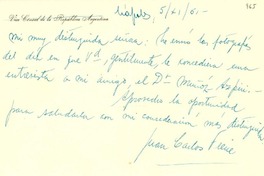 165
Vice Consul de la República Argentina
Napoles 5/21/61-
Mi muy distinguida : Le envío las fotografías
del día en que Vd, gentilmente, le concediera una
entrevista a mi amigo, el Dr Muñóz Azpiri.-
Aprovecho la oportunidad
para saludarla con mi consideración mas distinguida
Juan Carlos